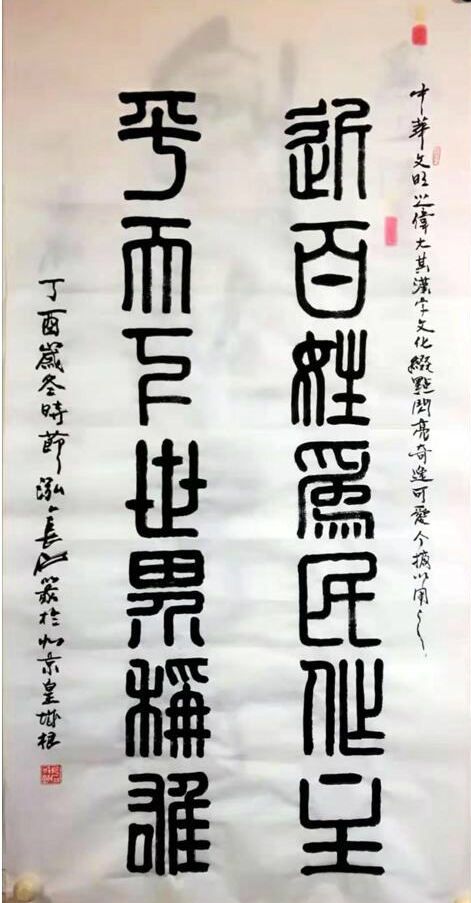 中華文旺之偉大其漢字文化點閃亮奇逸可愛今摘以用之
近百姓爲民作主
平天下世界稱雄
丁酉歲冬時節泓於北京皇城根